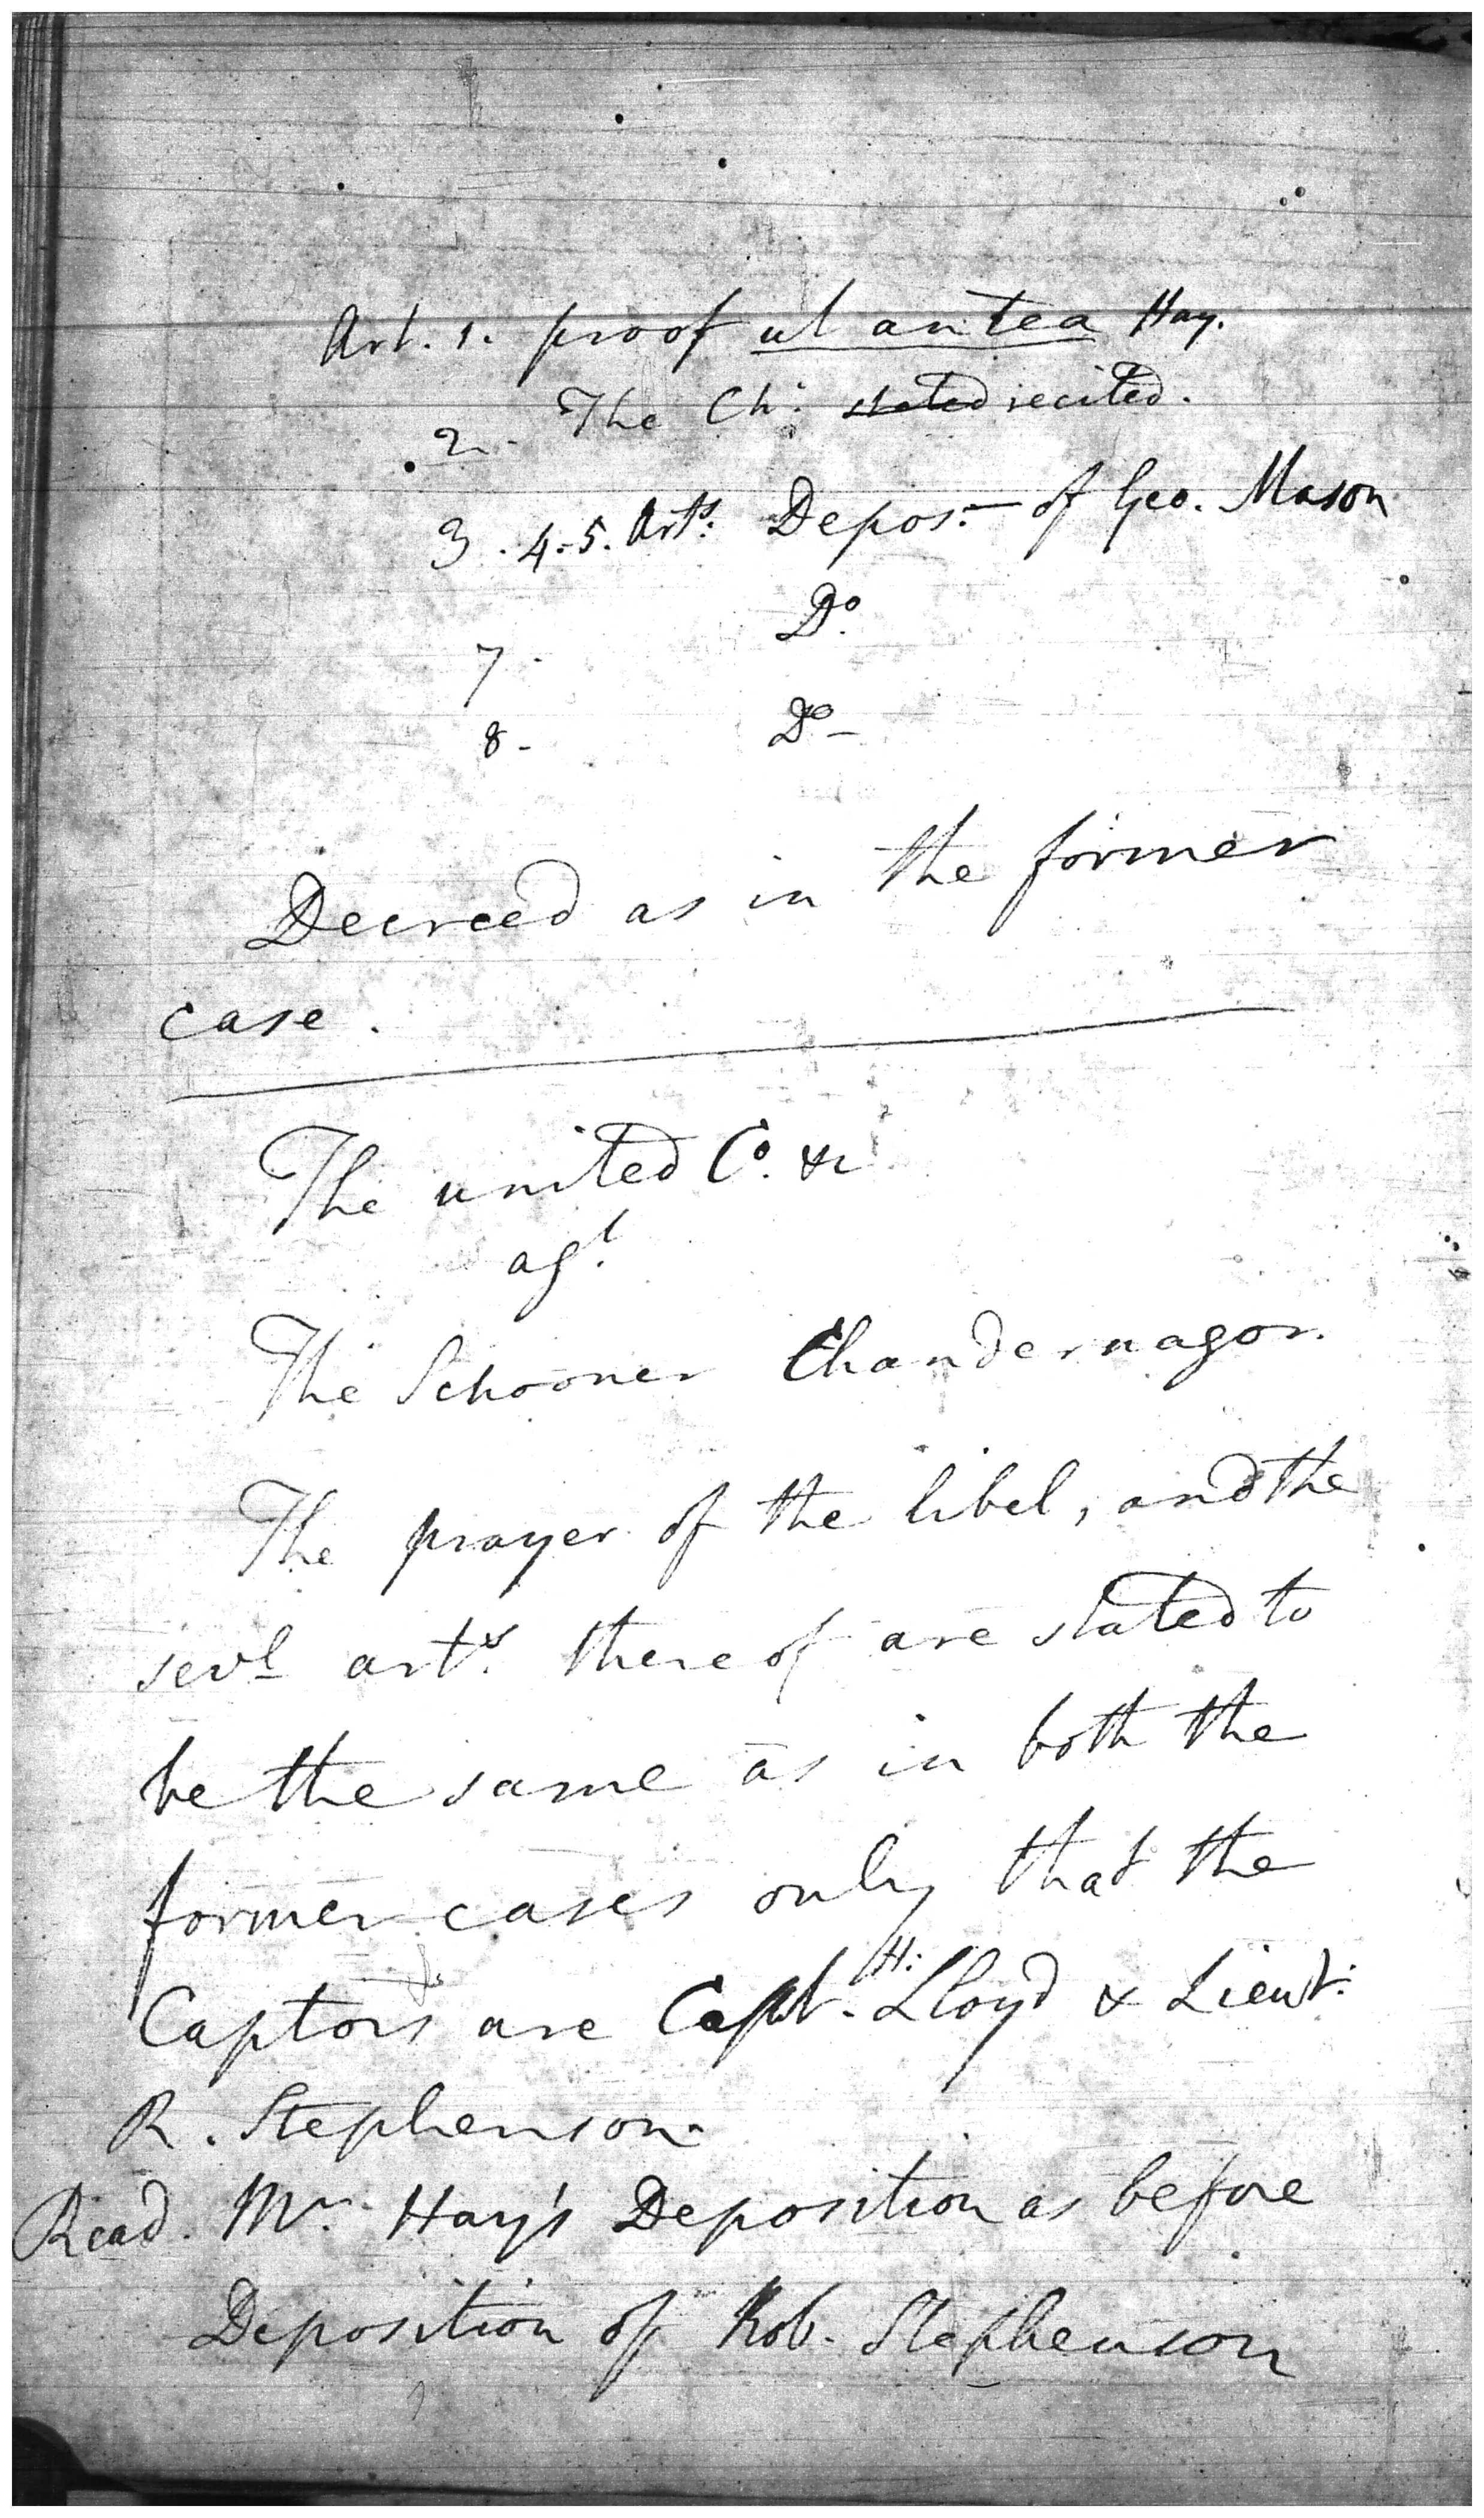 Art. 1. proof ut antea Hay.
2. The Ch: stated recited.
3. 4. 5. Arts: Depos:— of Geo. Mason
7. Do.
8 - Do -
Decreed as in the former
case.
The united Co. &c
agt.
The Schooner Chandernagor.
The prayer of the libel, and the
sevl arts. thereof are stated to
be the same as in both the
former cases only that the
Captors are Capt. H: Lloyd & Lieut:
R. Stephenson.
Read. Mr. Hay's Deposition as before
Deposition of Rob. Stephenson